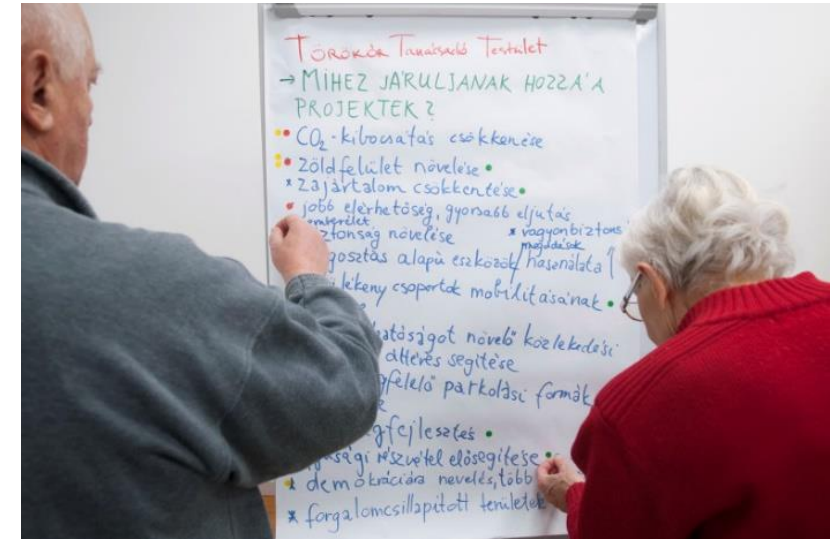 TÖRÖKŐR Tanácsadó Testület
→ MIHEZ JÁRULJANAK HOZZÁ A
PROJEKTEK?
CO₂-kibocsátás csökkenése
zöldfelület növelése
* zajártalom csökkentése
jobb elérhetőség, gyorsabb eljutás
* vagyonbiztons
ztonság növelése
gosztás alapú eszközök használata
ékeny csoportok mobilitásának
hatóságot növelő közlekedési
áttérés segítése
gfelelő parkolási formák
gfejlesztés
sági részvétel elősegítése
demokráciára nevelés, több
* forgalomcsillapított területek